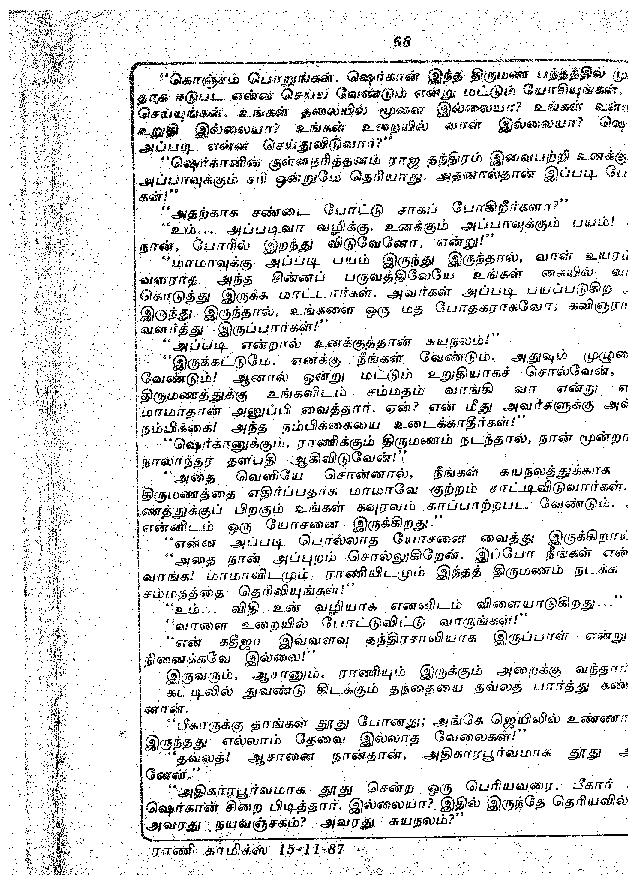 68
“கொஞ்சம் பொறுங்கள். ஷெர்கான் இந்த திருமண பந்தத்தில் மு
தாக ஈடுபட என்ன செய்ய வேண்டும் என்று மட்டும் யோசியுங்கள்.
செய்யுங்கள். உங்கள் தலையில் மூளை இல்லையா? உங்கள் உள்ள
உறுதி இல்லையா? உங்கள் உறையில் வாள் இல்லையா? ஷெ
அப்படி என்ன செய்துவிடுவார்?”
“ஷெர்கானின் குள்ளநரித்தனம் ராஜ தந்திரம் இவைபற்றி உனக்கு
அப்பாவுக்கும் சரி ஒன்றுமே தெரியாது. அதனால்தான் இப்படி பே
கள்!”
“அதற்காக சண்டை போட்டு சாகப் போகிறீர்களா?”
“உம்... அப்படிவா வழிக்கு. உனக்கும் அப்பாவுக்கும் பயம்!
நான், போரில் இறந்து விடுவேனோ, என்று!”
“மாமாவுக்கு அப்படி பயம் இருந்து இருந்தால், வாள் உயரம்
வளராத அந்த சின்னப் பருவத்திலேயே உங்கள் கையில் வா
கொடுத்து இருக்க மாட்டார்கள். அவர்கள் அப்படி பயப்படுகிற
இருந்து இருந்தால், உங்களை ஒரு மத போதகராகவோ, கவிஞரா
வளர்த்து இருப்பார்கள்!”
“அப்படி என்றால் உனக்குத்தான் சுயநலம்!”
“இருக்கட்டுமே. எனக்கு நீங்கள் வேண்டும். அதுவும் முழுமை
வேண்டும்! ஆனால் ஒன்று மட்டும் உறுதியாகச் சொல்வேன்,
திருமணத்துக்கு உங்களிடம் சம்மதம் வாங்கி வா என்று எ
மாமாதான் அனுப்பி வைத்தார். ஏன்? என் மீது அவர்களுக்கு அவ்
நம்பிக்கை! அந்த நம்பிக்கையை உடைக்காதீர்கள்!”
“ஷெர்கானுக்கும், ராணிக்கும் திருமணம் நடந்தால், நான் மூன்றா
நாலாந்தர தளபதி ஆகிவிடுவேன்!”
“அதை வெளியே சொன்னால், நீங்கள் சுயநலத்துக்காக
திருமணத்தை எதிர்ப்பதாக மாமாவே குற்றம் சாட்டிவிடுவார்கள்.
ணத்துக்குப் பிறகும் உங்கள் கவுரவம் காப்பாற்றபட வேண்டும்.
என்னிடம் ஒரு யோசனை இருக்கிறது.”
“என்ன அப்படி பொல்லாத யோசனை வைத்து இருக்கிறாய்
“அதை நான் அப்புறம் சொல்லுகிறேன். இப்போ நீங்கள் என்
வாங்க! மாமாவிடமும், ராணியிடமும் இந்தத் திருமணம் நடக்க
சம்மதத்தை தெரிவியுங்கள்!”
“உம்... விதி உன் வழியாக என்னிடம் விளையாடுகிறது...”
“வாளை உறையில் போட்டுவிட்டு வாருங்கள்!”
“என் கதீஜா இவ்வளவு தந்திரசாலியாக இருப்பாள் என்று
நினைக்கவே இல்லை!”
இருவரும், ஆசானும், ராணியும் இருக்கும் அறைக்கு வந்தார்
கட்டிலில் துவண்டு கிடக்கும் தந்தையை தவ்லத் பார்த்து கண்
னான்.
“பீகாருக்கு தாங்கள் தூது போனது; அங்கே ஜெயிலில் உண்ணா
இருந்தது எல்லாம் தேவை இல்லாத வேலைகள்!”
“தவ்லத்! ஆசானை நான்தான், அதிகாரபூர்வமாக தூது அ
னேன்.”
“அதிகாரபூர்வமாக தூது சென்ற ஒரு பெரியவரை, பீகார்
ஷெர்கான் சிறை பிடித்தார். இல்லையா? இதில் இருந்தே தெரியவில்
அவரது நயவஞ்சகம்? அவரது சுயநலம்?”
ராணி காமிக்ஸ் 15-11-87